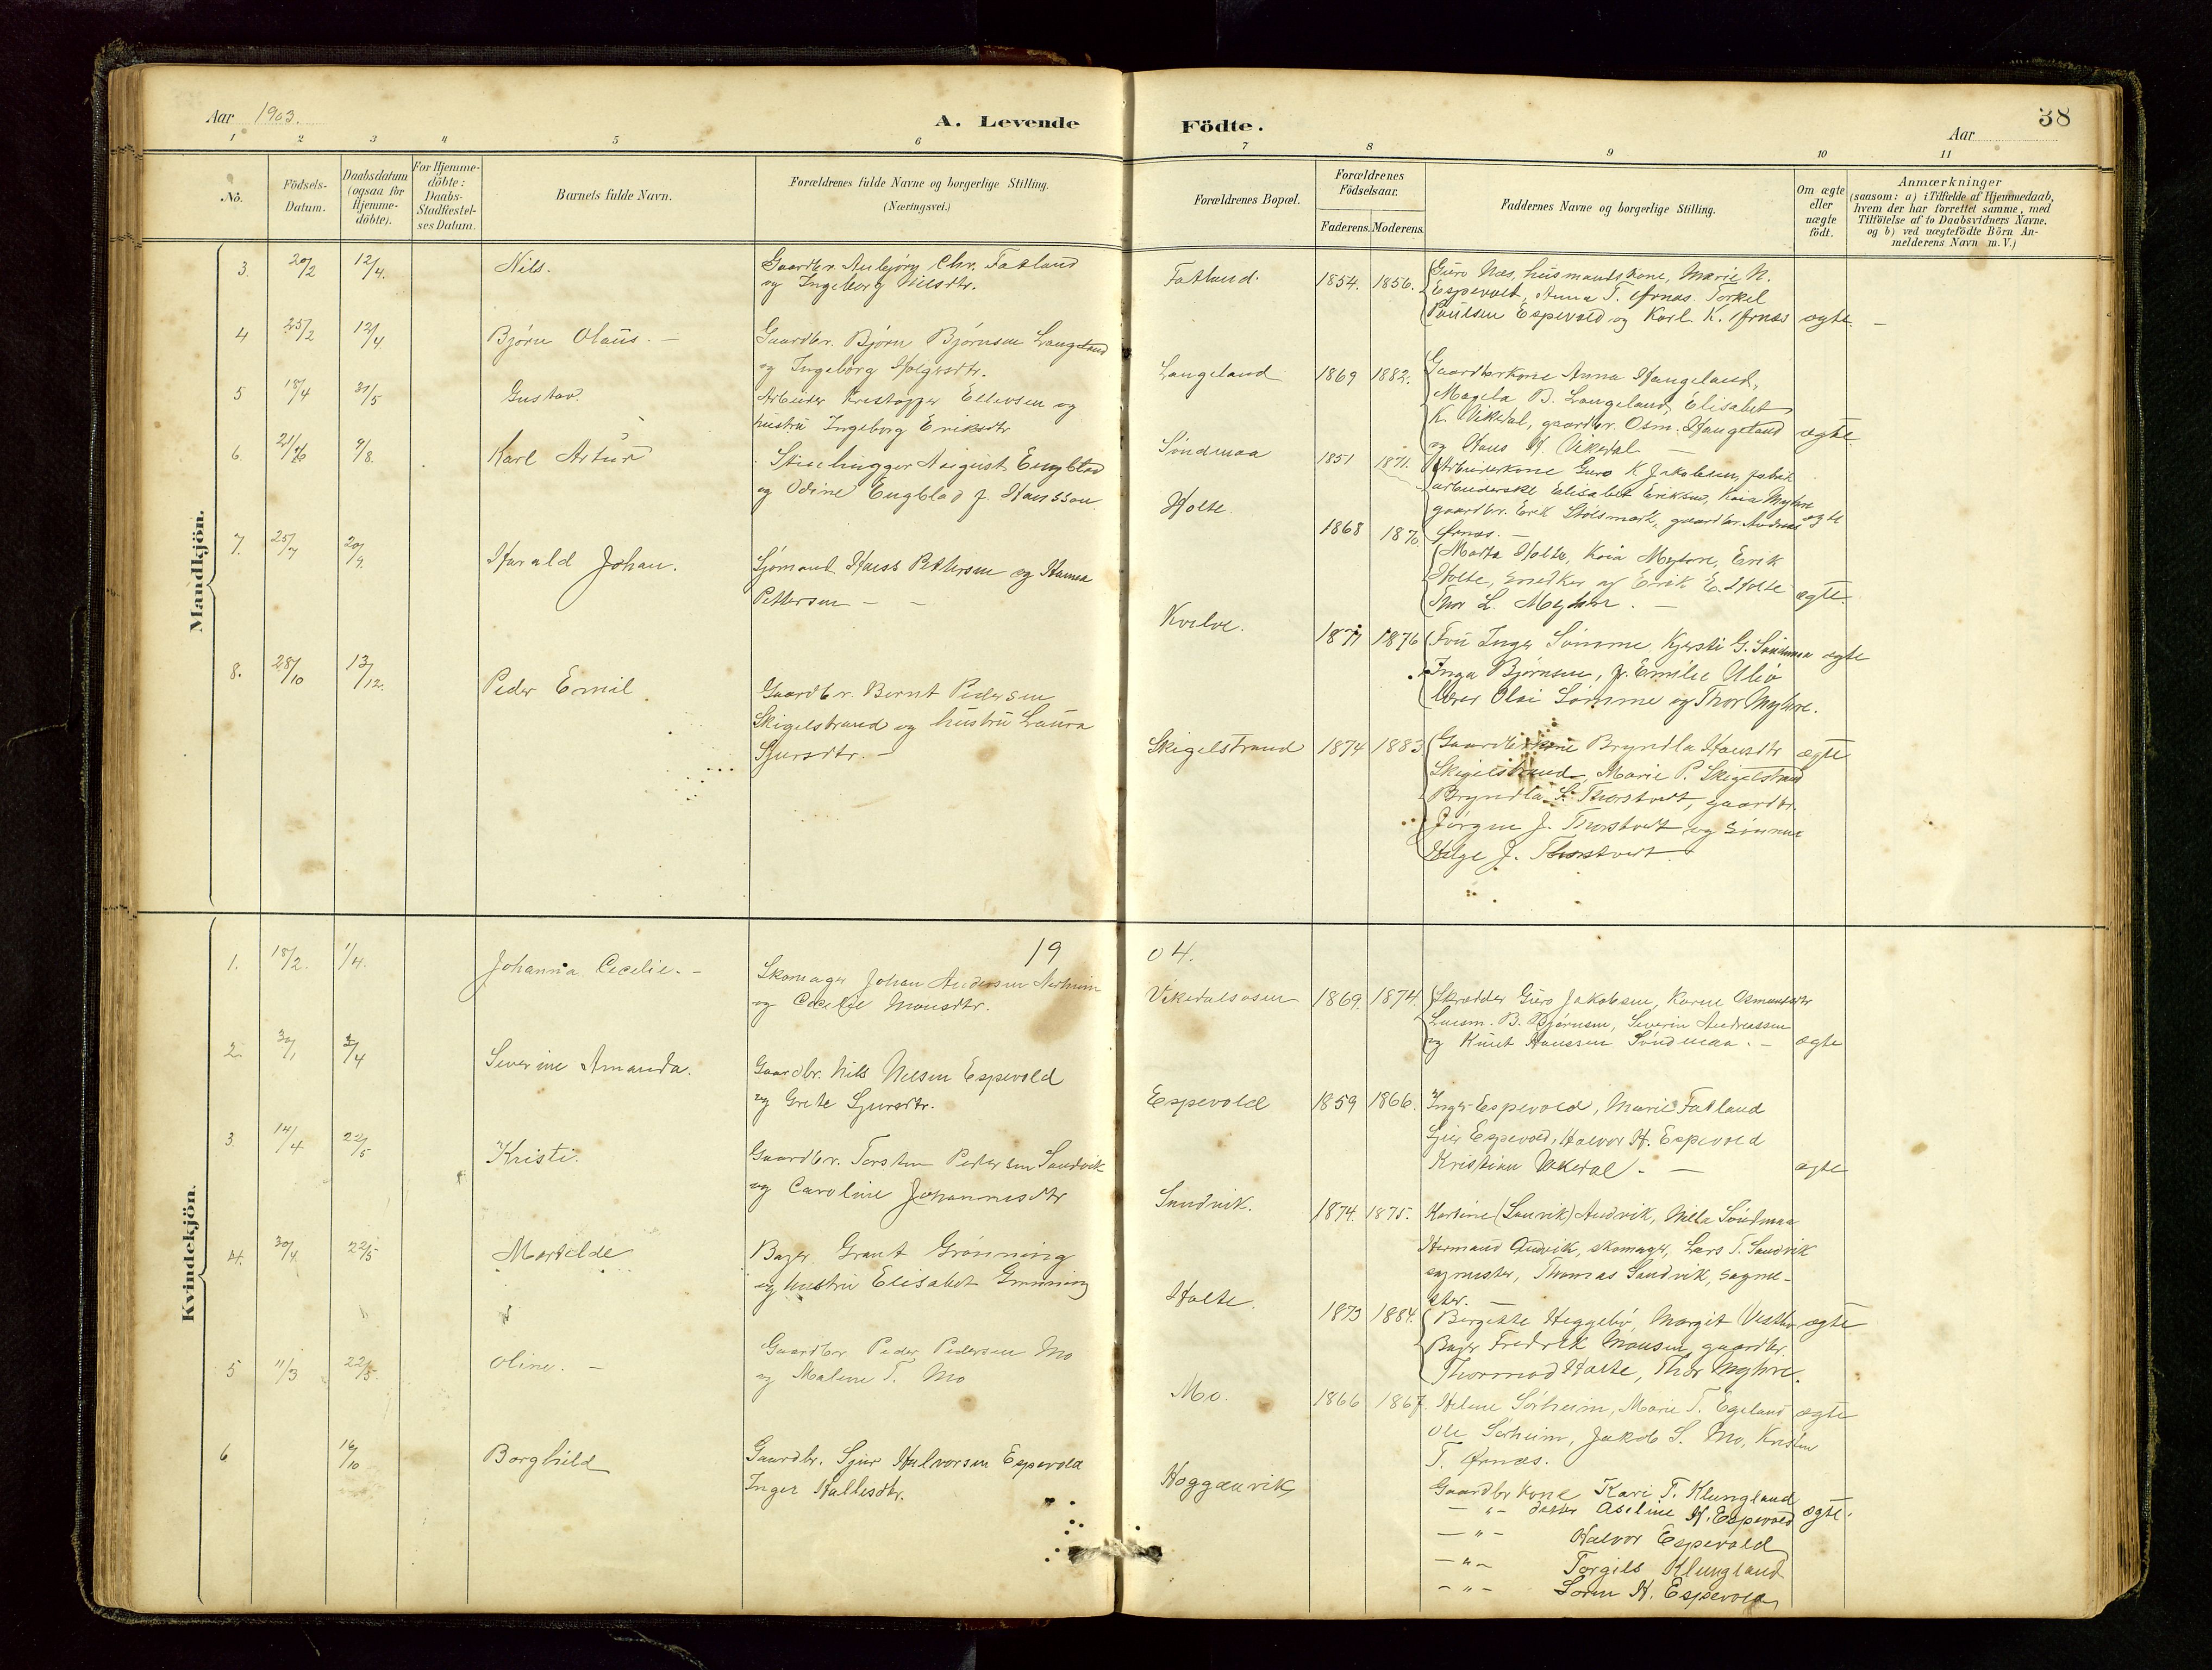 Aar 1903.
A. Levende
Födte.
Aar
38
1 2 3 4 5 6 7 8 9 10 11
No.
Födsels-Datum.
Daabsdatum (ogsaa for Hjemme-döbte).
For Hjemme-döbte: Daabs-Stadfæstel-ses Datum.
Barnets fulde Navn.
Forældrenes fulde Navne og borgerlige Stilling.
(Næringsvei.)
Forældrenes Bopæl.
Forældrenes Födselsaar.
Faderens. Moderens.
Faddernes Navne og borgerlige Stilling.
Om ægte eller uægte födt.
Anmærkninger
(saasom: a) i Tilfælde af Hjemmedaab,
hvem der har forrettet samme, med
Tilföielse af to Daabsvidners Navne.
og b) ved uægtefödte Börn An-
melderens Navn m. V.)
Mandkjön.
3. 20/2 12/4. Nils.
Gaardbr. Aubjørg Chr. Fatland
og Ingeborg Nilsdtr.
Fatland. 1854. 1856.
Guro Næs, husmandskone, Marie N.
Espevold, Anna T. Ørnæs. Torkel
Poulsen Espevold og Karl K. Ørnæs ægte. –
4 25/2 12/4 Bjørn Olaus. –
Gaardbr. Bjørn Bjørnsen Langeland
og Ingeborg Helgesdtr.
Langeland 1869 1882.
Gaardbrkone Anna Haugeland,
Magela B. Langeland, Elisabet
K. Vikedal, gaardbr. Osm. Haugeland ægte
og Hans H. Vikedal –
5 18/4 31/5 Gustav.
Arbeider Kristoffer Ellevsen og
hustru Ingeborg Eriksdtr
Søndenaa 1851 1871.
Arbeiderkone Guro K Jakobsen, fabrik
arbeiderske Elisabet Eriksen, Kaia Myhre
gaardbr. Erik Stølsmark, gaardbr. Andreas ægte
Ørnæs. –
6. 21/6 9/8. Karl Artur
Stenhugger August Engblad
og Odine Engblad f. Hansson.
Holte. 1868 1870
Marta Holte, Kaia Myhre, Erik
Holte, snedker og Erik E. Holte ægte.
Thor L. Myhre. –
7. 25/7 20/9. Harald Johan.
Sjømand Hans Pettersen og Hanna
Pettersen – –
Kvelve. 1871 1876
Fru Inger Sømme, Kjersti G. Søndenaa ægte
Inga Bjørnsen, f. Emilie Ulvø
lærer Olai Sømme og Thor Myhre.
8. 28/10 13/12. Peder Emil
Gaardbr. Bernt Pedersen
Skigelstrand og hustru Laura
Sjursdtr. –
Skigelstrand 1874 1883
Gaardbrkone Bryndla Hansdtr ægte
Skigelstrand, Marie P. Skigelstrand
Bryndla S. Thorstvedt, gaardbr.
Jørgen J. Thorstvedt og
Helge J. Thorstvedt
Kvindekjön.
19 04.
1. 18/2. 1/4. Johanna Cecelie. –
Skomager Johan Andersen Nerheim
og Cecelie Monsdtr.
Vikedalsosen 1869. 1874.
Skrædder Guro Jakobsen, Karen Osmundsdtr
Lensm. B. Bjørnsen, Severin Andreassen
og Knut Hanssen Søndenaa. – ægte
2. 30/1 3/4 Severine Amanda.
Gaardbr. Nils Nilsen Espevold
og Grete Sjursdtr.
Espevold 1859 1866.
Inger Espevold, Marie Fatland
Sjur Espevold, Halvor H. Espevold
Kristian Vikedal. – ægte
3. 14/4 22/5 Kristi.
Gaardbr. Torsten Pedersen Sandvik
og Caroline Johannesdtr
Sandvik. 1874. 1875.
Martine (Sanvik) Andvik, Mella Søndenaa
Hermand Andvik, skomager, Lars T. Sandvik
sagmester, Thomas Sandvik, sagme-
ster. –
4. 30/4 22/5 Martilde
Bager Grant Grønning
og hustru Elisabet Grønning
Holte. 1873 1884.
Bergitte Heggebø, Margit Vestbø ægte
Bager Fredrik Monsen, gaardbr.
Thormod Holte, Thor Myhre.
5 11/3 22/5. Oline. –
Gaardbr Peder Pedersen Mo
og Malene T. Mo
Mo. 1866 1867.
Helene Sørheim, Marie T. Egeland ægte
Ole Sørheim, Jakob S. Mo, Kristen
T. Ørnæs.
6 16/10 Borghild
Gaardbr. Sjur Halvorsen Espevold
Inger Hallisdtr.
Hogganvik
Gaardbr kone Kari T. Klungland
– " – datter Aseline H. Espevold ægte.
– " – Halvor Espevold
– " – Torgils Klungland
– " – Søren H. Espevold